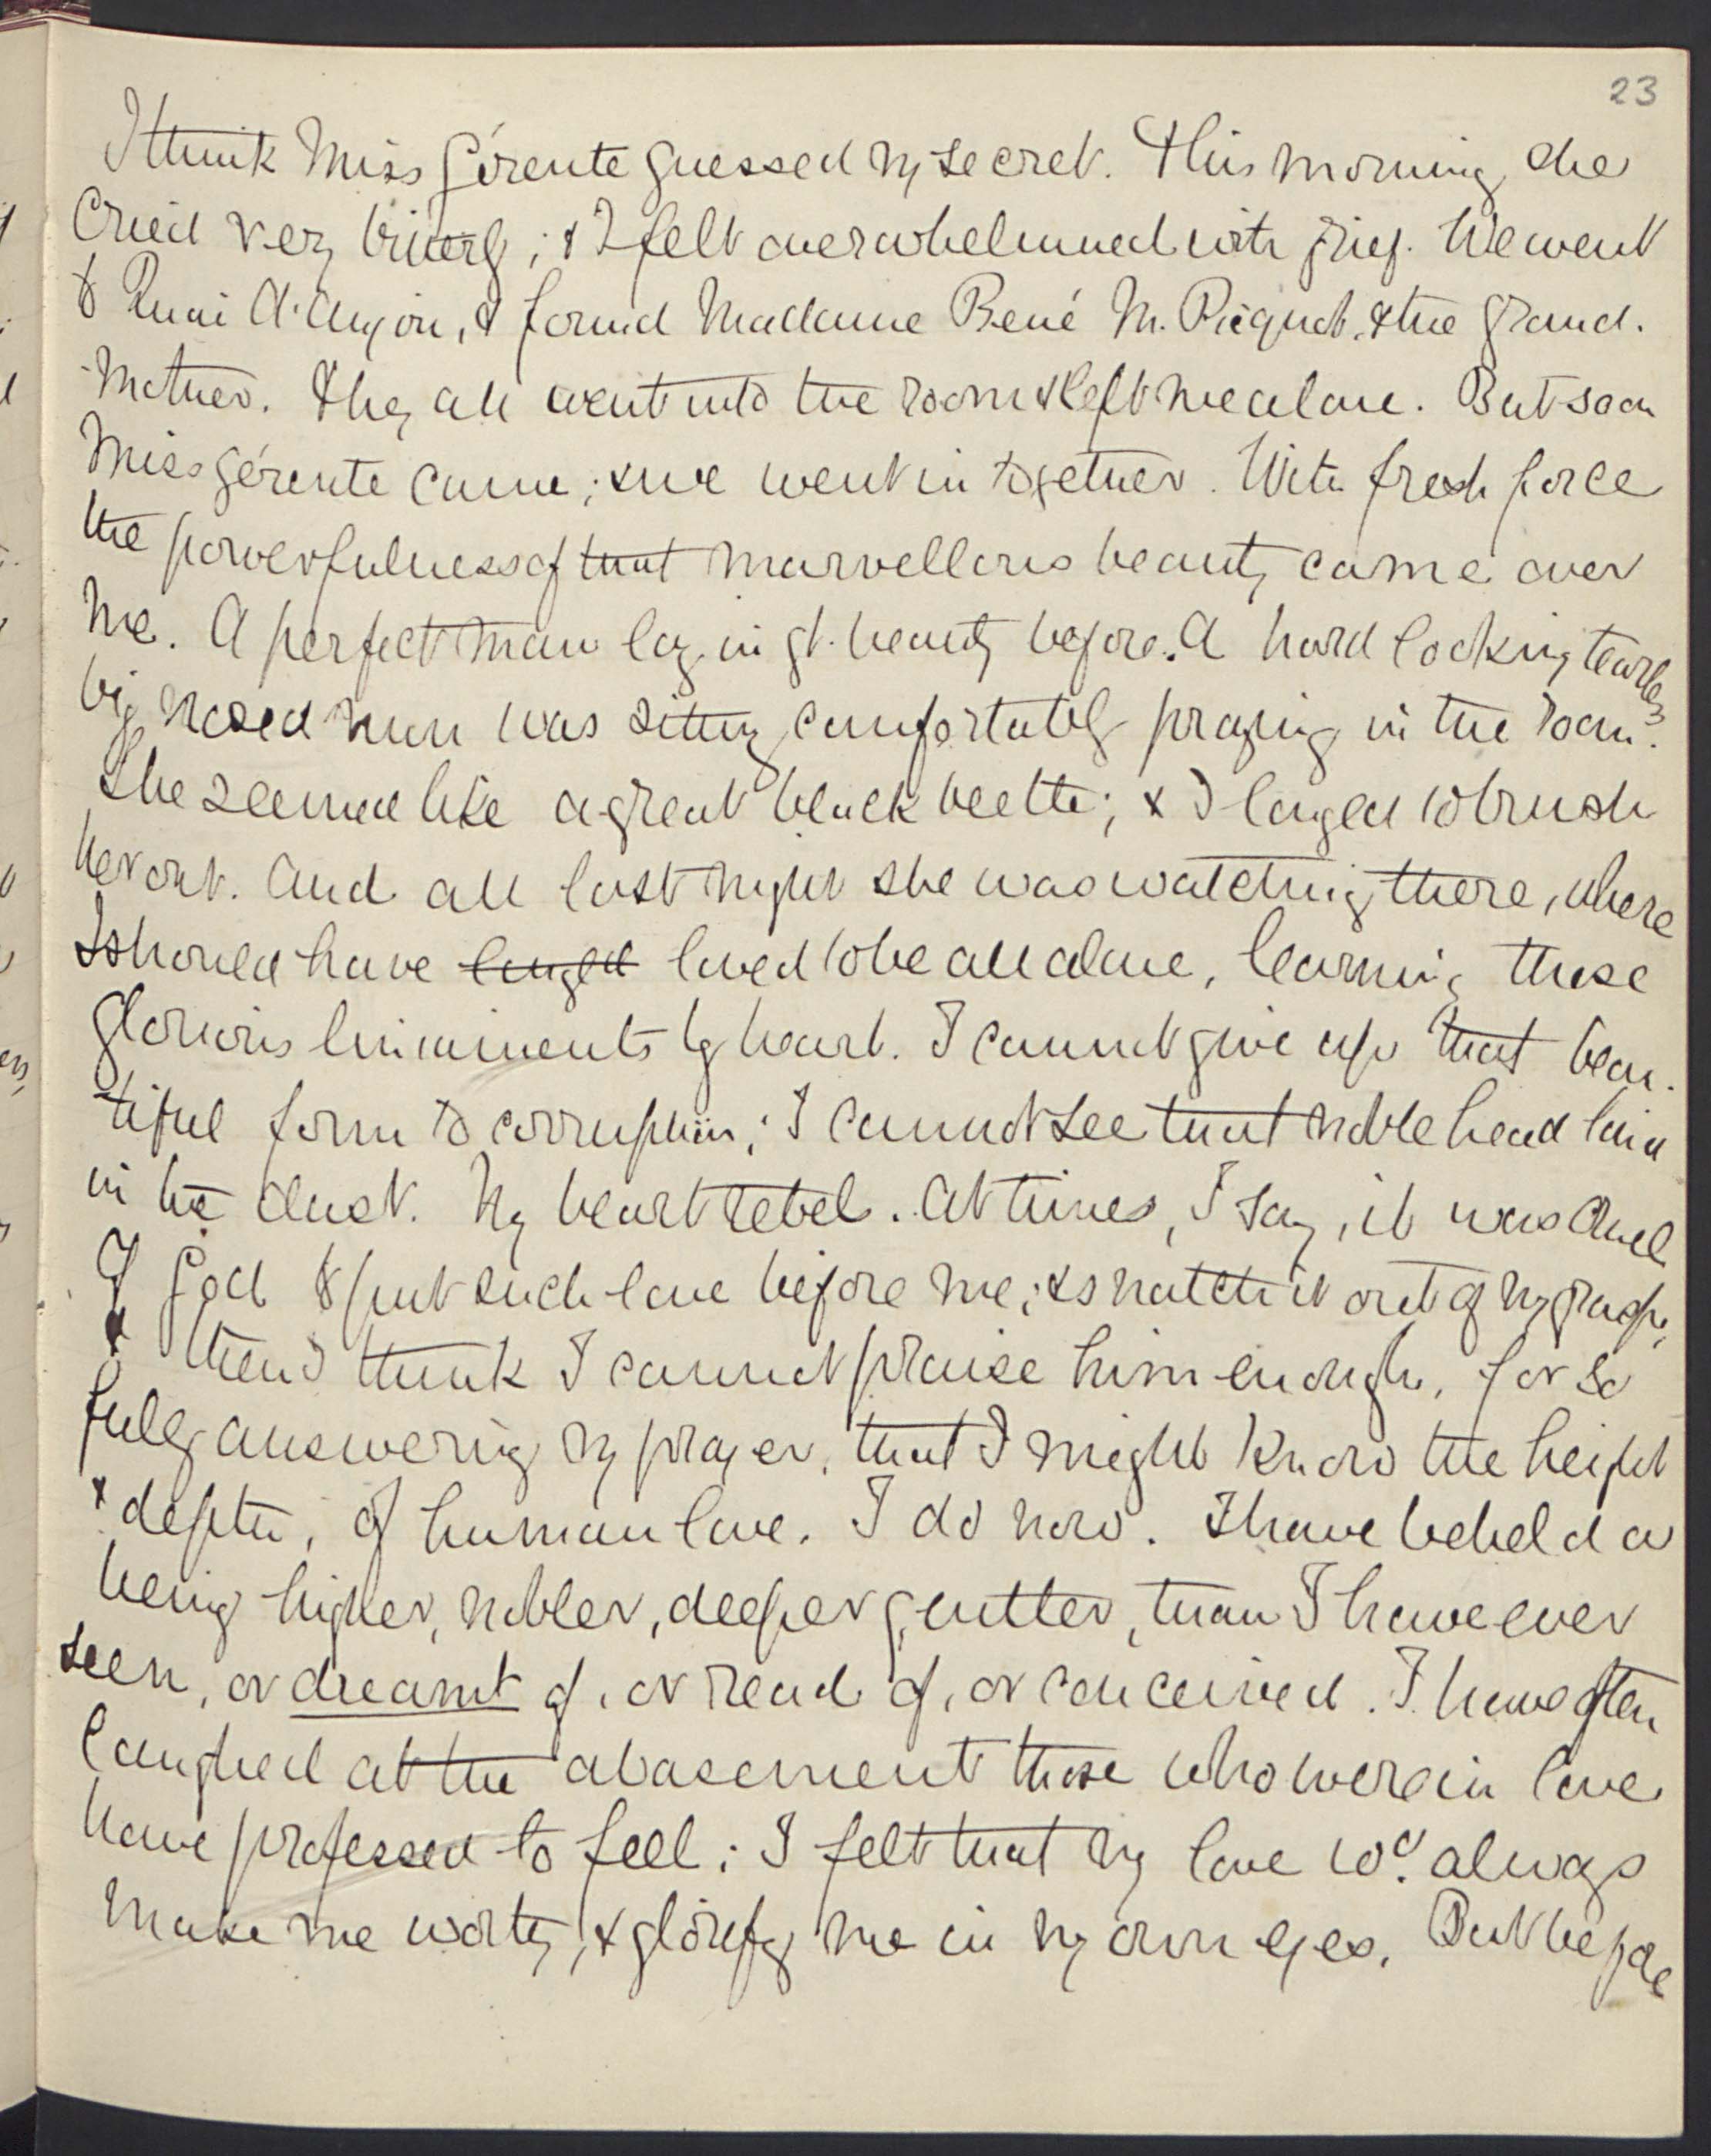 23
I think Miss Gérente guessed my secret. This morning she
cried very bitterly; & I felt overwhelmed with grief. We went
to Quai d'Anjou, & found Madame René M. Picquot & the Grand-
mother. They all went into the room & left me alone. But soon
Miss Gérente came; & we went in together. With fresh force
the powerfulness of that marvellous beauty came over
me. A perfect man lay in gt. beauty before. A hard looking tearless
big nosed nun was sitting comfortably praying in the room.
She seemed like a great black beetle; & I longed to brush
her out. And all last night she was watching there, where
I should have longed loved to be all alone, learning those
glorious liniaments by heart. I cannot give up that beau-
tiful form to corruption; I cannot see that noble head laid
in the dust. My heart rebel. At times, I say, it was cruel
of God to put such love before me; & snatch it out of my grasp;
& then I think I cannot praise him enough, for so
fully answering my prayer, that I might know the height
& depth, of human love. I do now. I have beheld a
being higher, nobler, deeper, gentler, than I have ever
seen, or dreamt of, or read of, or conceived. I have often
laughed at the abasement those who were in love
have professed to feel; I felt that my love wd. always
make me worthy, & glorify me in my own eyes. But before